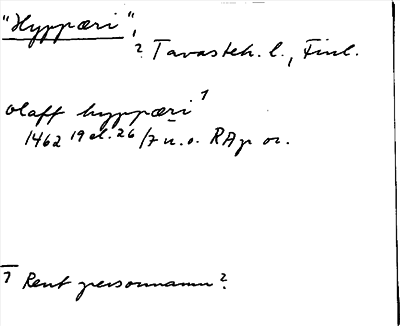 "Hyppæri",
? Tavasteh. l., Finl.
olaff hyppæri 1
1462 19 el. 26/7 u.o. RAp or.
1 Rent personnamn?